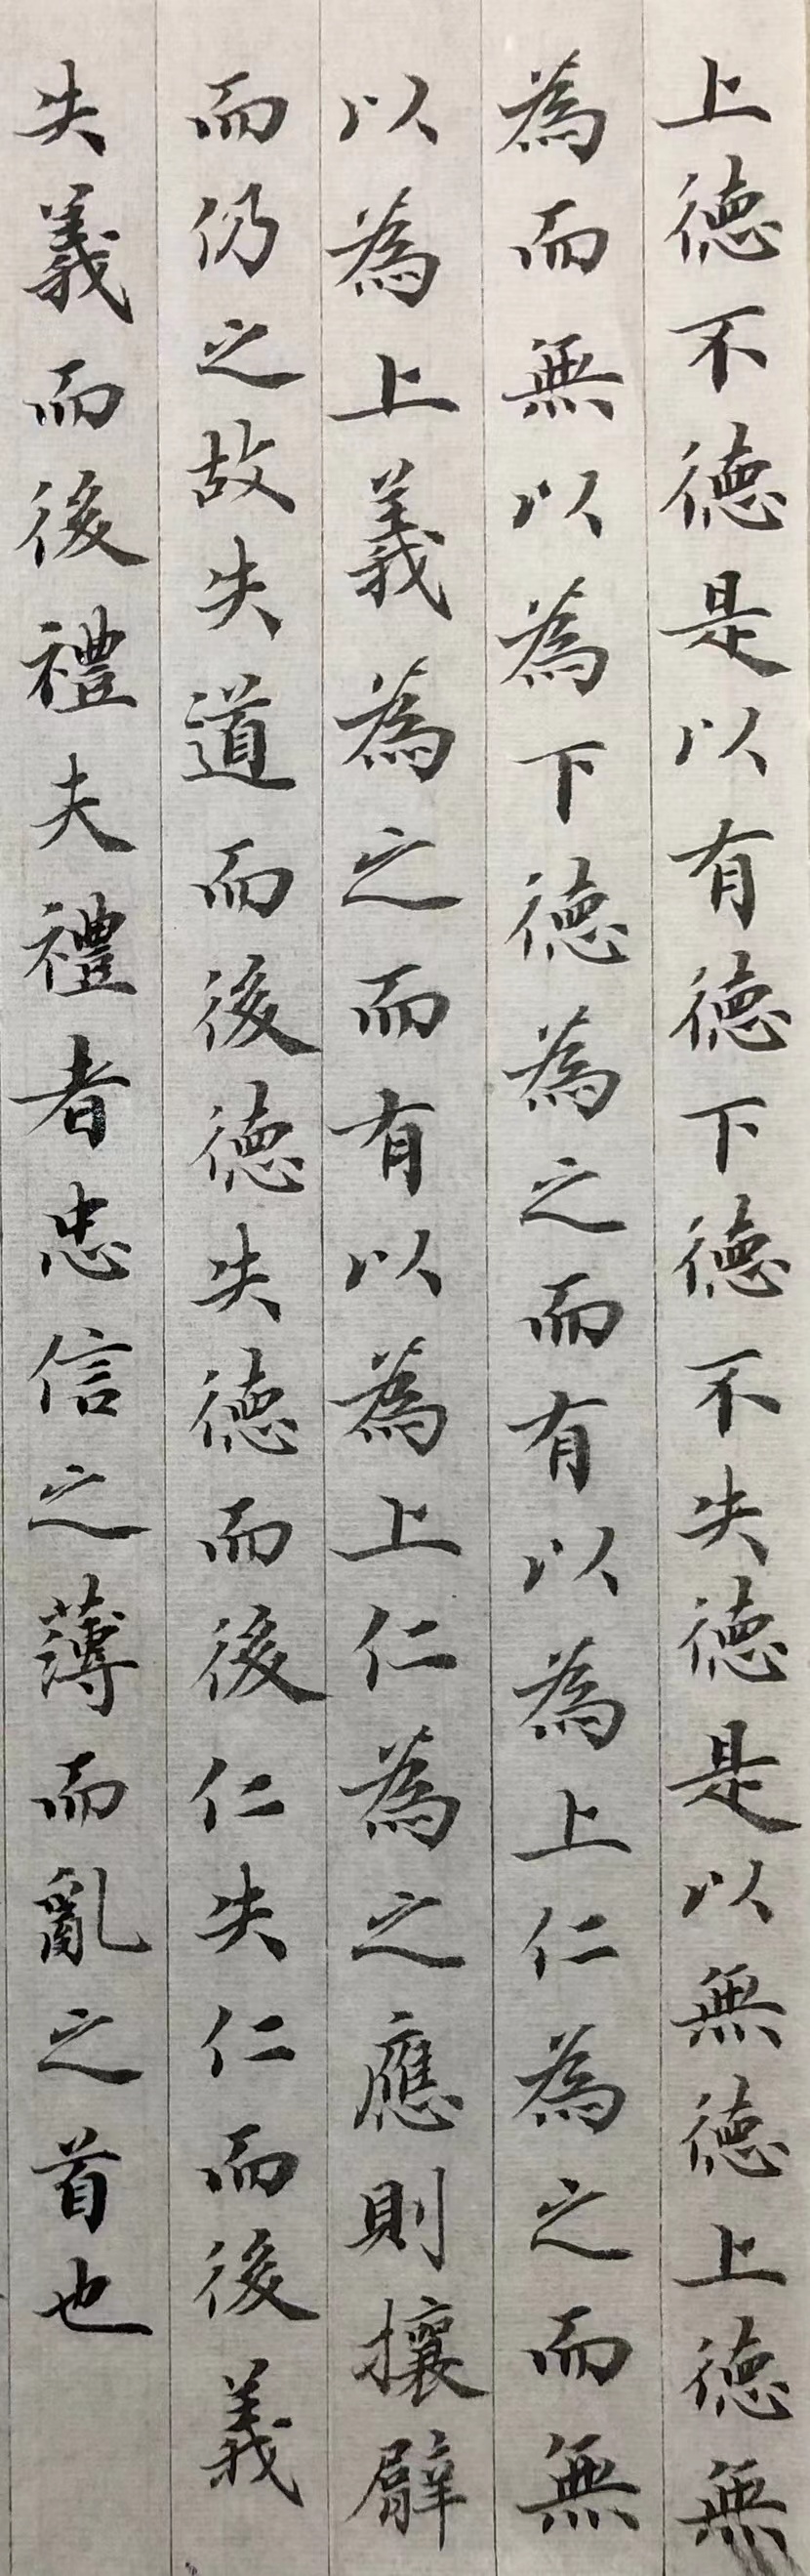 上德不德是以有德下德不失德是以無德上德無
為而無以為下德為之而有以為上仁為之而無
以為上義為之而有以為上仁為之應則攘臂
而仍之故失道而後德失德而後仁失仁而後義
失義而後禮夫禮者忠信之薄而亂之首也